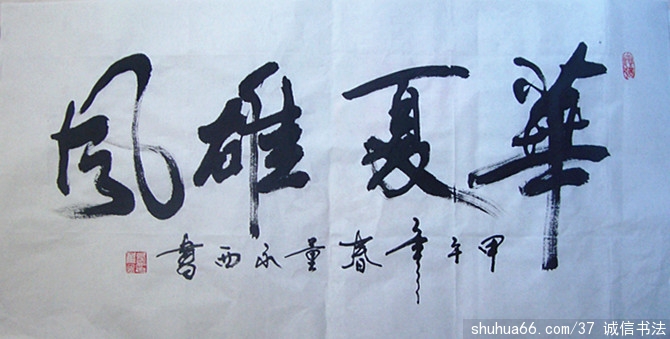 華夏雄風
甲午年春永西書
shuhua66.com/37 诚信书法